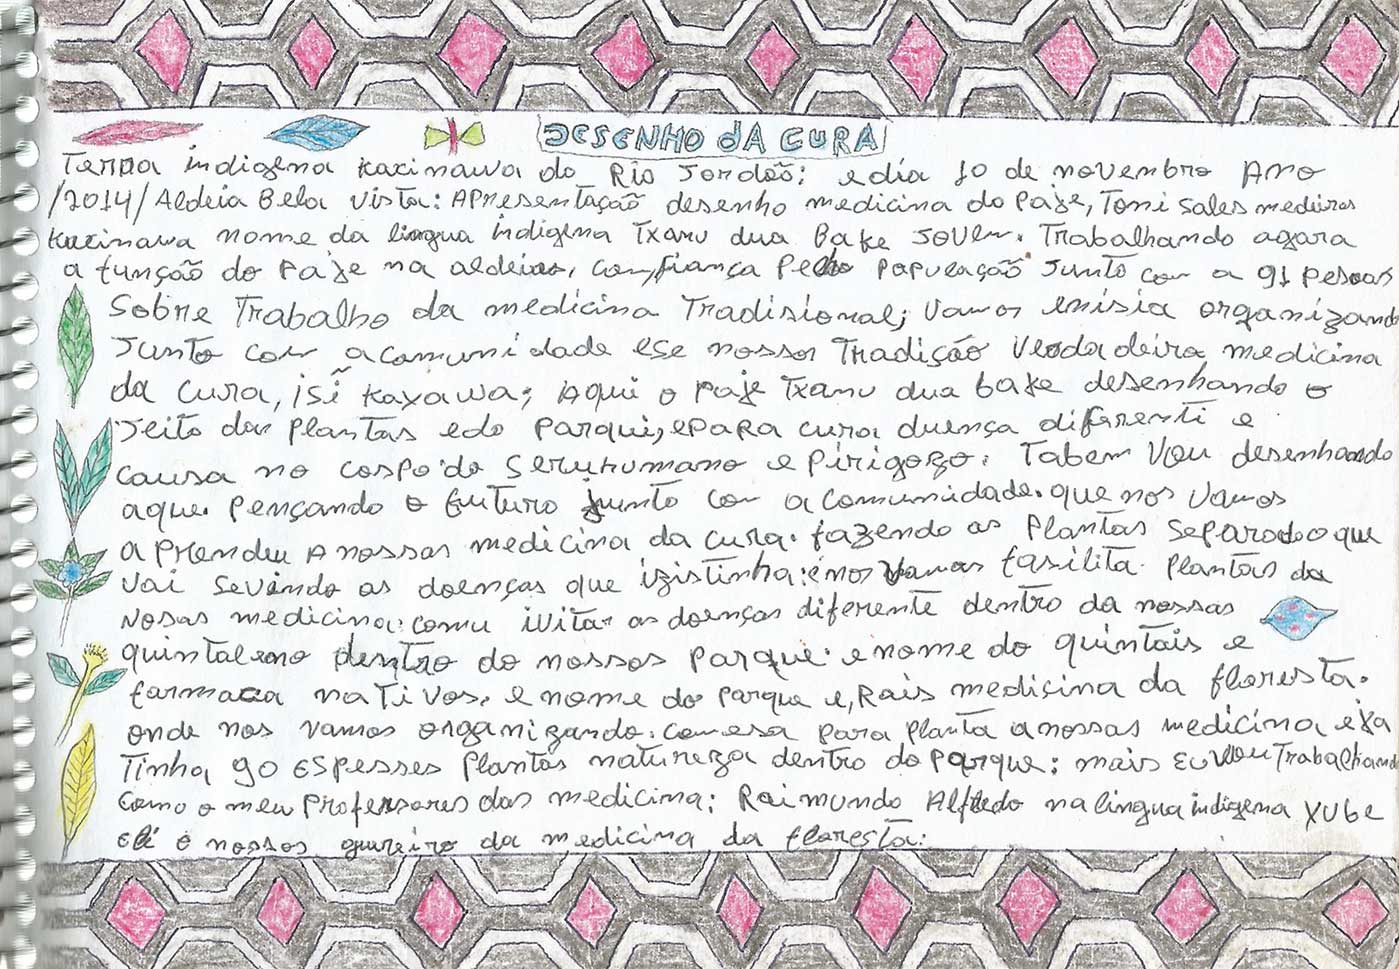 DESENHO DA CURA
Terra indigena Kaxinawa do Rio Jordão; e dia 10 de novembro Ano
/2014/ Aldeia Bela Vista: Apresentação desenho medicina do Paje, Tomi Sales medeiros
Kaxinawa nome da lingua indigena Txanu dua Bake Joven. Trabalhando agara
a função do Paje na aldeias, confiança Pelo População Junto con a 91 pesoas
Sobre Trabalho da medicina Tradisional; Vamos enisia organizando
Junto con a comunidade ese nossor Tradição Verdadeira medicina
da cura, isĩ Kayawa; Aqui o Paje Txanu dua bake desenhando o
Jeito das Plantas e do Parqui, e PARA cura duença diferenti e
causa no corpo do Seruhumano e Pirigozo. Tabem Vou desenhando
aque. Pençando o futuro junto con a comunidade. que nos Vamos
aprendeu A nossas medicina da cura. fazendo as Plantas Separado que
Vai Sevindo as doenças que izistinha: e nos Vamos fasilita Plantas da
Nosas medicina: comu ivitar as doenças diferente dentro da nossas
quintal e no dentro do nossos Parque. e nome do quintais e
farmaca nativos. e nome do Parque e, Rais medicina da floresta.
onde nos vamos organizando. comesa para Planta a nossas medicina exa
Tinha 90 ESPesses Plantas natureza dentro do Parque: mais Eu Vou Trabalhand
Como o meu Professores das medicina: Raimundo Alfredo na lingua indigena Xube
Eli é nossos gureiro da medicina da floresta: